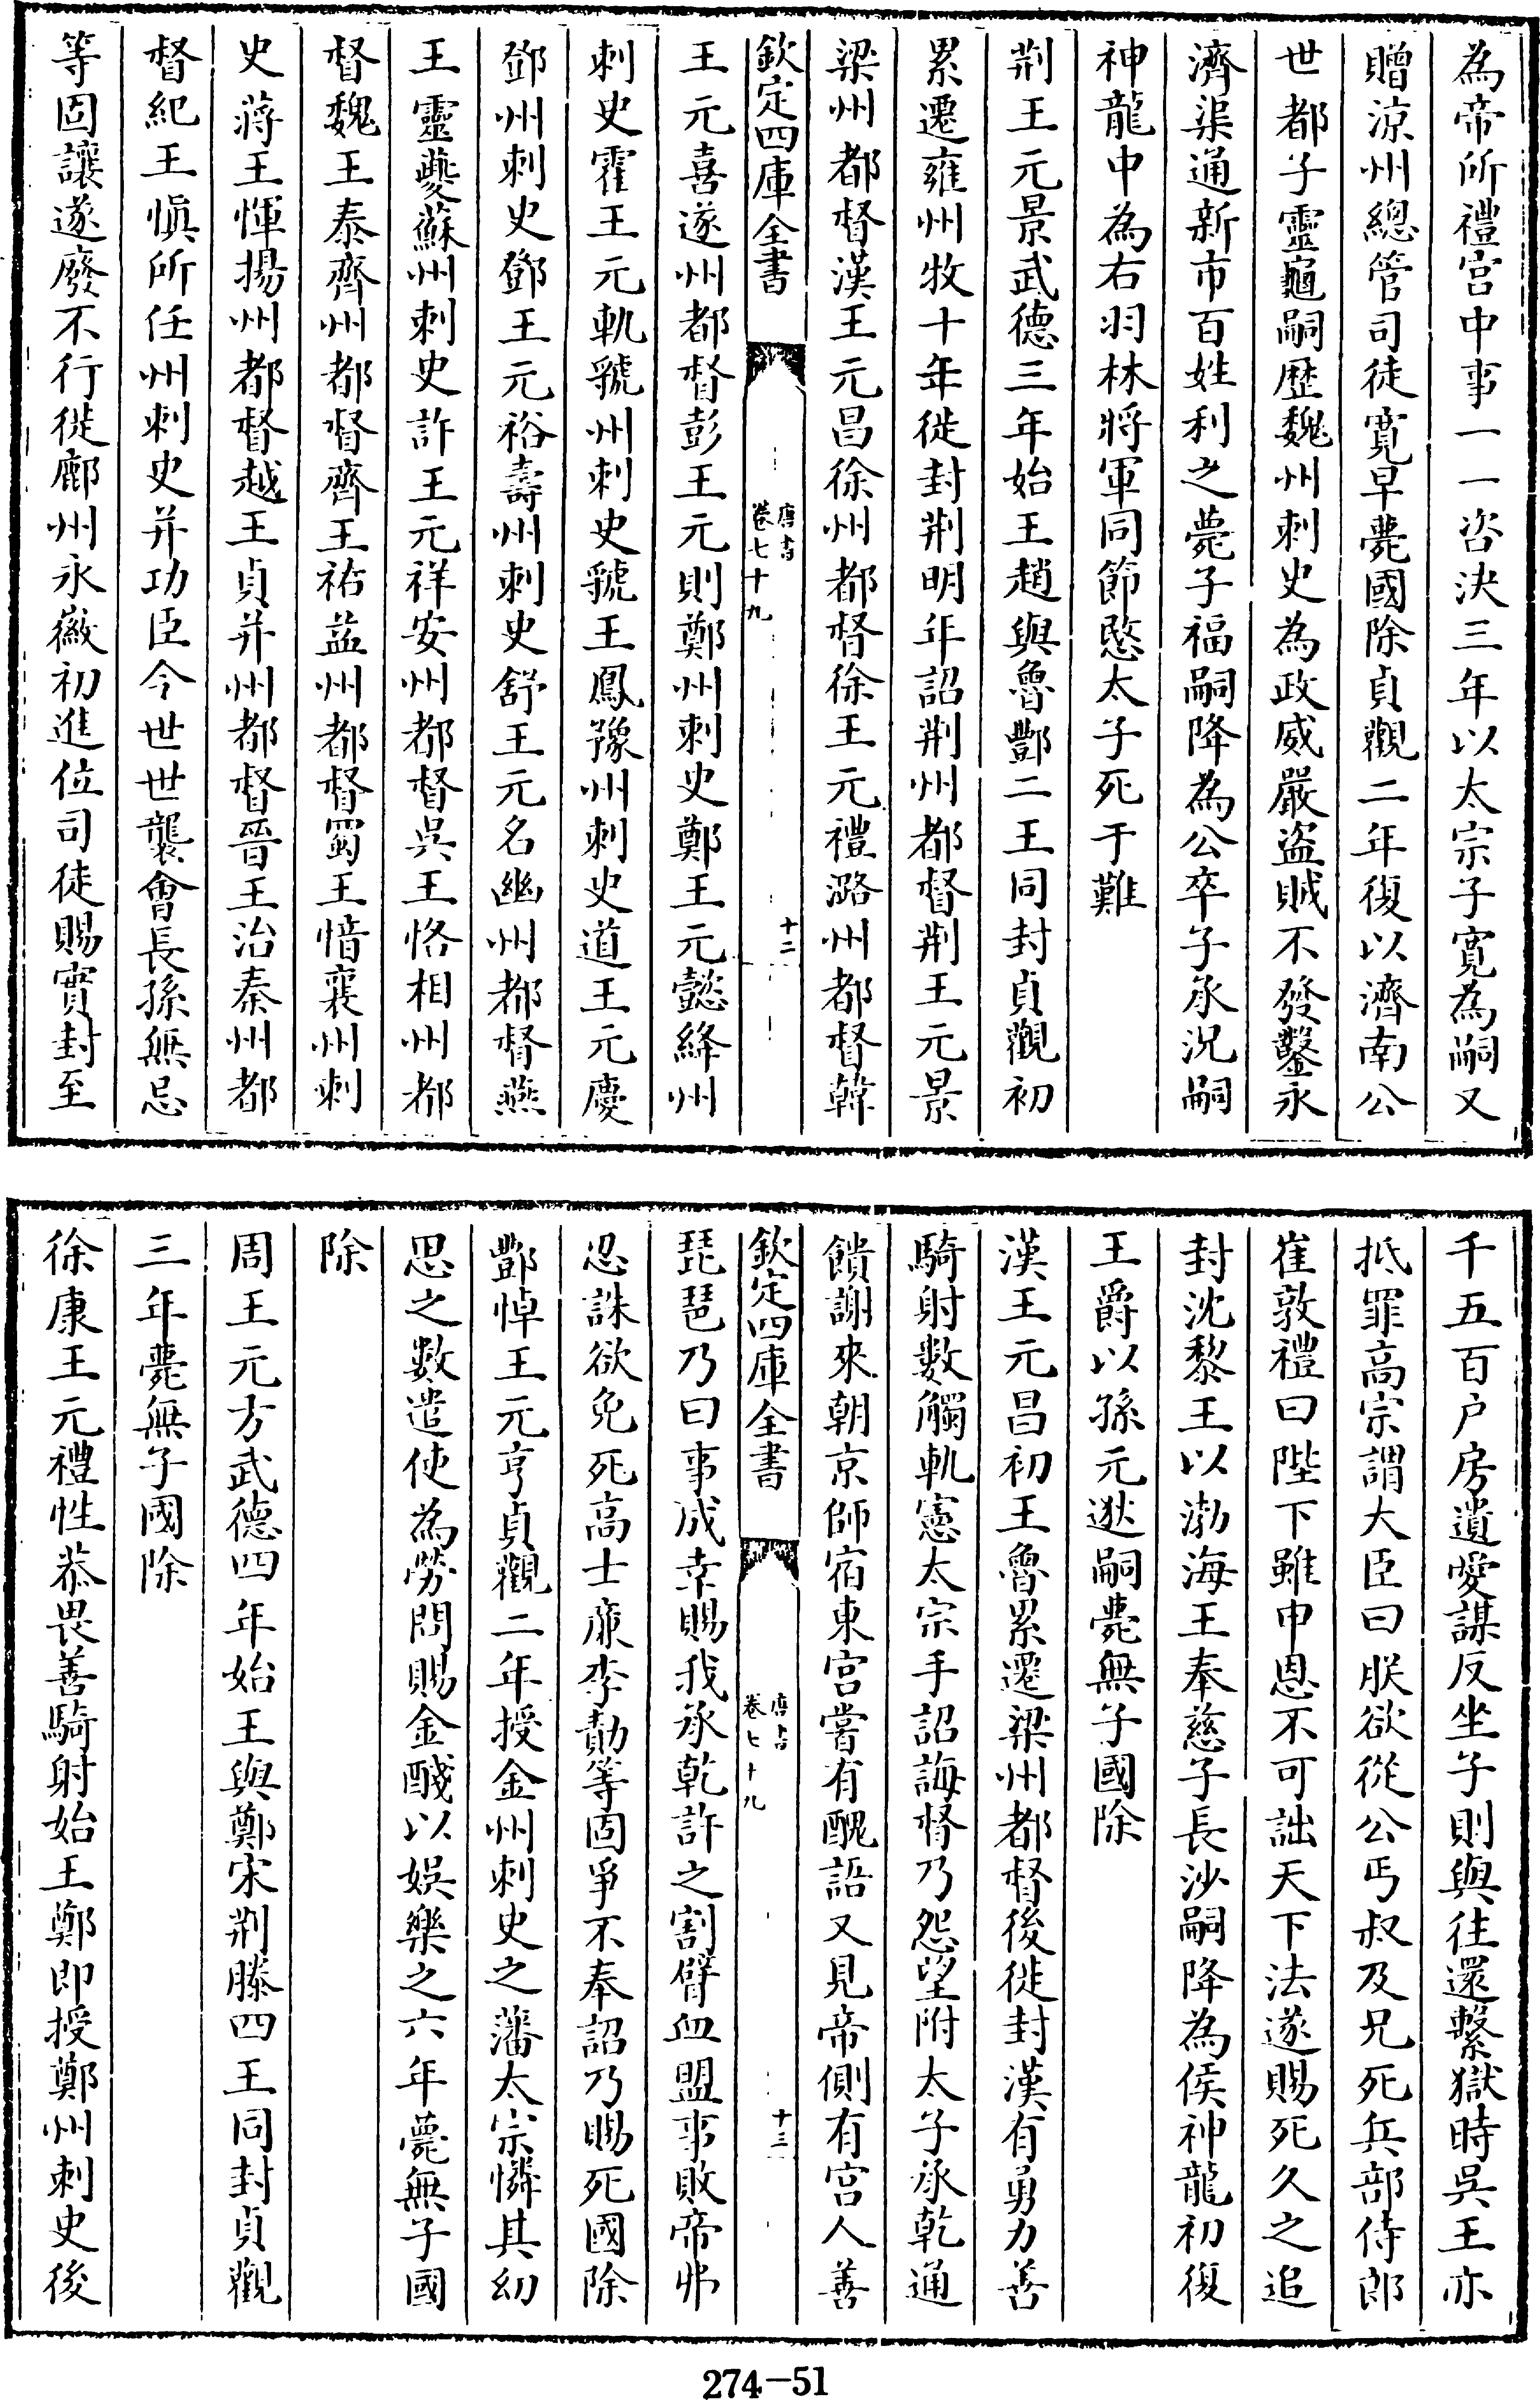 為帝所禮宫中事一一咨決三年以太宗子寛為嗣又
贈涼州總管司徒寛早薨國除貞觀二年復以濟南公
世都子靈龜嗣歴魏州刺史為政威嚴盜賊不發鑿永
濟渠通新市百姓利之薨子福嗣降為公卒子承況嗣
神龍中為右羽林將軍同節愍太子死于難
荆王元景武德三年始王趙與魯酆二王同封貞觀初
累遷雍州牧十年徙封荆明年詔荆州都督荆王元景
梁州都督漢王元昌徐州都督徐王元禮潞州都督韓
欽定四庫全書
唐書
卷七十九
十二
王元喜遂州都督彭王元則鄭州刺史鄭王元懿絳州
刺史霍王元軌虢州刺史虢王鳳豫州刺史道王元慶
鄧州刺史鄧王元裕壽州刺史舒王元名幽州都督燕
王靈夔蘇州刺史許王元祥安州都督吳王恪相州都
督魏王泰齊州都督齊王祐益州都督蜀王愔襄州刺
史蔣王惲揚州都督越王貞并州都督晉王治秦州都
督紀王慎所任州刺史并功臣令世世襲會長孫無忌
等固讓遂廢不行徙鄜州永徽初進位司徒賜實封至
千五百户房遺愛謀反坐子則與往還繫獄時吳王亦
抵罪高宗謂大臣曰朕欲從公丐叔及兄死兵部侍郎
崔敦禮曰陛下雖申恩不可詘天下法遂賜死久之追
封沈黎王以渤海王奉慈子長沙嗣降為侯神龍初復
王爵以孫元逖嗣薨無子國除
漢王元昌初王魯累遷梁州都督後徙封漢有勇力善
騎射數觸軌憲太宗手詔誨督乃怨望附太子承乾通
饋謝來朝京師宿東宫嘗有醜語又見帝側有宫人善
欽定四庫全書
唐書
卷七十九
十三
琵琶乃曰事成幸賜我承乾許之割臂血盟事敗帝弗
忍誅欲免死高士廉李勣等固爭不奉詔乃賜死國除
酆悼王元亨貞觀二年授金州刺史之藩太宗憐其幼
思之數遣使為勞問賜金醆以娯樂之六年薨無子國
除
周王元方武德四年始王與鄭宋荆滕四王同封貞觀
三年薨無子國除
徐康王元禮性恭畏善騎射始王鄭即授鄭州刺史後
274-51